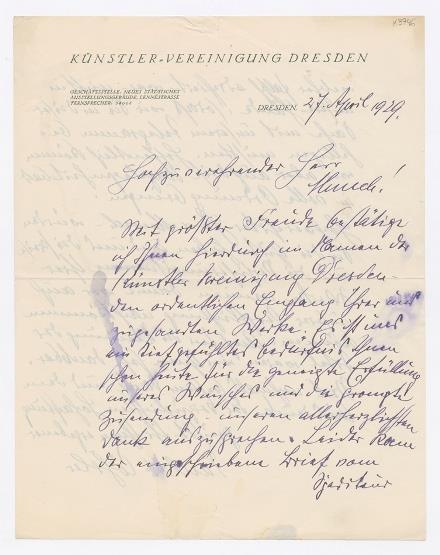 K 3946
KÜNSTLER-VEREINIGUNG DRESDEN
GESCHÄFTSSTELLE: NEUES STÄDTISCHES
AUSSTELLUNGSGEBÄUDE, LENNÉSTRASSE
FERNSPRECHER:
DRESDEN, 27. April 1929.
Hochzuverehrender Herr
Munch!
Mit größter Freude bestätige
ich Ihnen hierdurch im Namen der
Künstler Vereinigung Dresden
den ordentlichen Eingang Ihrer uns
zugesandten Werke. Es ist uns
ein tiefgefühltes Bedürfnis Ihnen
schon heute für die geneigte Erfüllung
unseres Wunsches und die prompte
Zusendung unseren allerherzlichsten
Dank auszusprechen. Leider kam
der eingeschriebene Brief vom
Spediteur